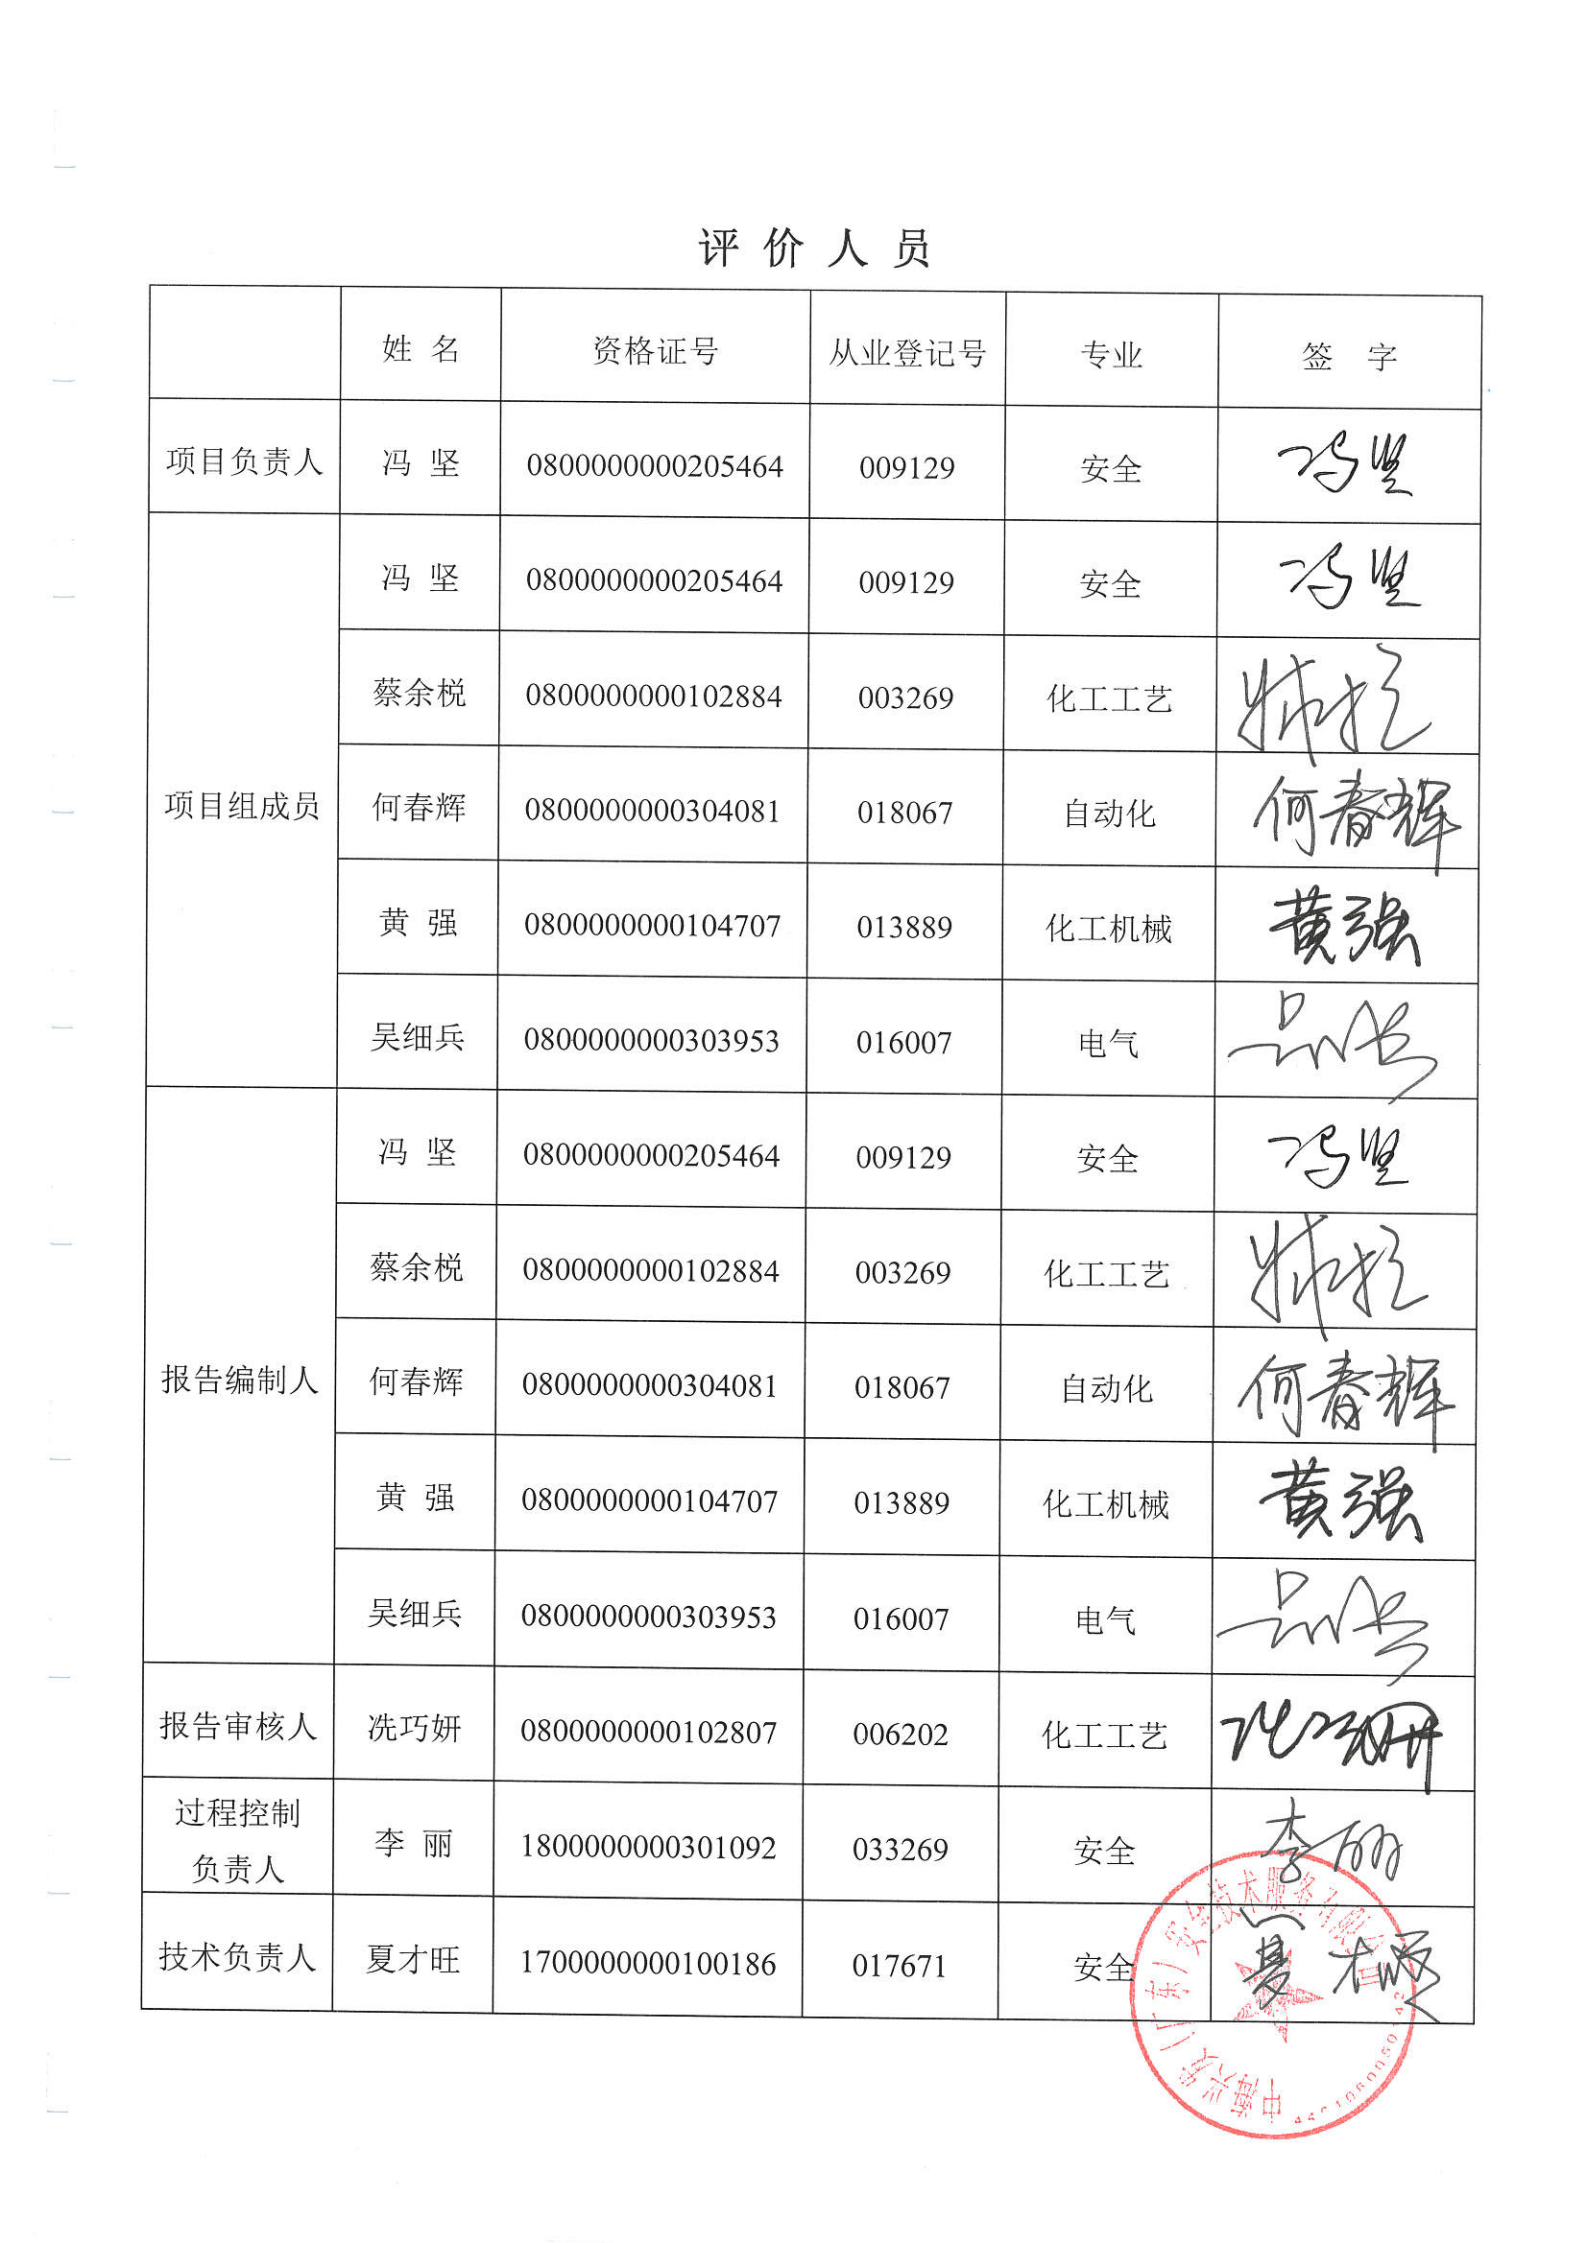 评价人员
姓 名 资格证号 从业登记号 专业 签 字
项目负责人 冯 坚 0800000000205464 009129 安全 冯坚
项目组成员 冯 坚 0800000000205464 009129 安全 冯坚
蔡余棁 0800000000102884 003269 化工工艺
何春辉 0800000000304081 018067 自动化 何春辉
黄 强 0800000000104707 013889 化工机械 黄强
吴细兵 0800000000303953 016007 电气
报告编制人 冯 坚 0800000000205464 009129 安全 冯坚
蔡余棁 0800000000102884 003269 化工工艺
何春辉 0800000000304081 018067 自动化 何春辉
黄 强 0800000000104707 013889 化工机械 黄强
吴细兵 0800000000303953 016007 电气
报告审核人 冼巧妍 0800000000102807 006202 化工工艺
过程控制
负责人 李 丽 1800000000301092 033269 安全 李丽
技术负责人 夏才旺 1700000000100186 017671 安全